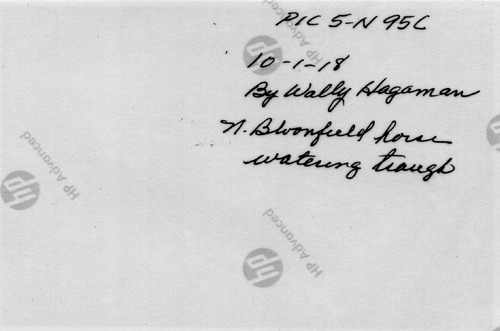 PIC 5-N 95C
10-1-18
By Wally Hagaman
N. Bloomfield horse
watering trough
hp
HP Advanced
hp
HP Advanced
hp
HP Advanced
hp